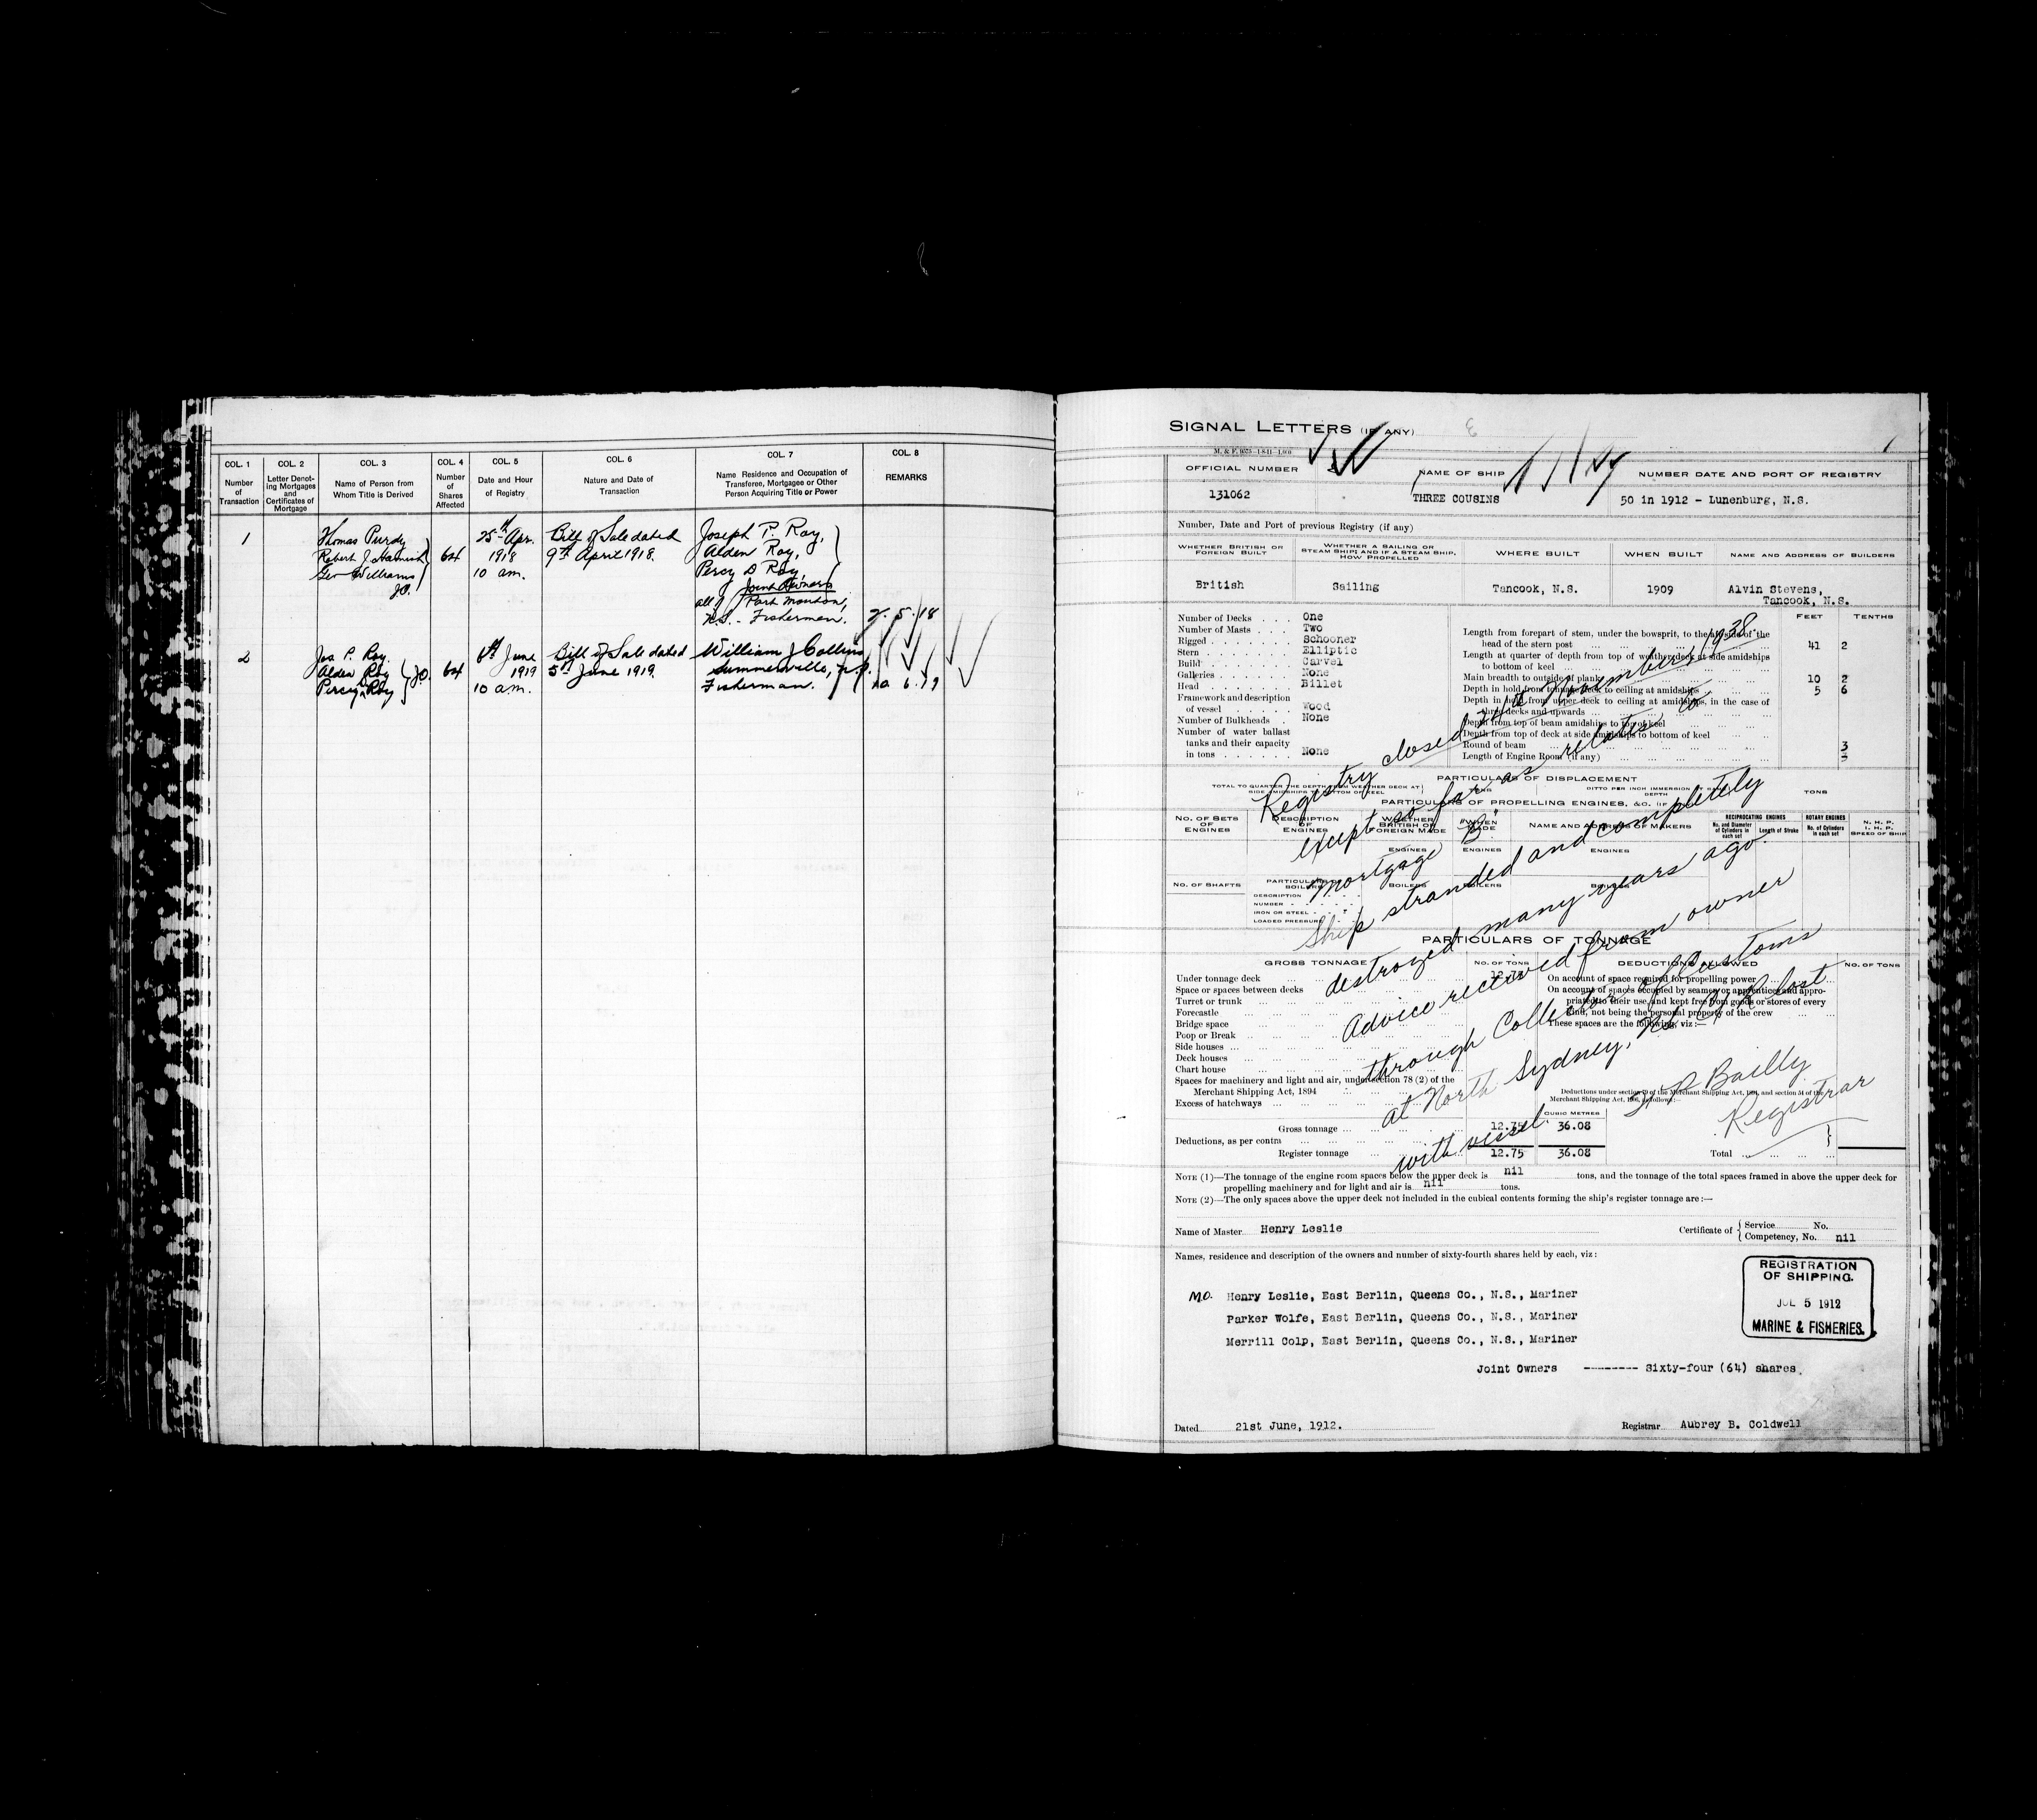 COL. 1 COL. 2 COL. 3 COL. 4 COL. 5 COL. 6 COL. 7 COL. 8
Number of Transaction
Letter Denoting Mortgages and Certificates of Mortgage
Name of Person from Whom Title is Derived
Number of Shares Affected
Date and Hour of Registry
Nature and Date of Transaction
Name Residence and Occupation of Transferee, Mortgagee or Other Person Acquiring Title or Power
REMARKS
1 Thomas Purdy 25th Apr. Bill of Sale dated Joseph P. Roy,
Robert J Harnish 64 1918 9th April 1918. Alden Roy,
Geo Williams 10 am. Percy D Roy,
J.O. Joint Owners
all of Port Mouton,
N.S. - Fishermen. 2. 5. 18
2 Jos P. Roy 6th June Bill of Sale dated William J Collins
Alden Roy J.O. 64 1919 5th June 1919. Summerville, N.S.
Percy D Roy 10 am. Fisherman. 10. 6. 19
SIGNAL LETTERS (IF ANY)
OFFICIAL NUMBER NAME OF SHIP NUMBER DATE AND PORT OF REGISTRY
131062 THREE COUSINS 50 in 1912 - Lunenburg, N.S.
Number, Date and Port of previous Registry (if any)
WHETHER BRITISH OR FOREIGN BUILT
WHETHER A SAILING OR STEAM SHIP; AND IF A STEAM SHIP, HOW PROPELLED
WHERE BUILT WHEN BUILT NAME AND ADDRESS OF BUILDERS
British Sailing Tancook, N.S. 1909 Alvin Stevens,
Tancook, N.S.
Number of Decks One
Number of Masts Two
Rigged Schooner
Stern Elliptic
Build Carvel
Galleries None
Head Billet
Framework and description
of vessel Wood
Number of Bulkheads None
Number of water ballast
tanks and their capacity
in tons None
FEET TENTHS
Length from forepart of stem, under the bowsprit, to the aft side of the
head of the stern post 41 2
Length at quarter of depth from top of weather deck at side amidships
to bottom of keel
Main breadth to outside of plank 10 2
Depth in hold from tonnage deck to ceiling at amidships 5 6
Depth in hold from upper deck to ceiling at amidships, in the case of
three decks and upwards
Depth from top of beam amidships to top of keel
Depth from top of deck at side amidships to bottom of keel
Round of beam 3
Length of Engine Room (if any)
PARTICULARS OF DISPLACEMENT
TOTAL TO QUARTER THE DEPTH FROM WEATHER DECK AT SIDE AMIDSHIPS TO BOTTOM OF KEEL
DITTO PER INCH IMMERSION AT SAME DEPTH TONS
PARTICULARS OF PROPELLING ENGINES, &C. (IF
NO. OF SETS OF ENGINES
DESCRIPTION OF ENGINES
WHETHER BRITISH OR FOREIGN MADE
WHEN MADE
NAME AND ADDRESS OF MAKERS
RECIPROCATING ENGINES
No. and Diameter of Cylinders in each set
Length of Stroke
ROTARY ENGINES
No. of Cylinders in each set
N. H. P.
I. H. P.
SPEED OF SHIP
ENGINES ENGINES ENGINES
NO. OF SHAFTS
PARTICULARS OF BOILERS BOILERS BOILERS BOILERS
DESCRIPTION
NUMBER
IRON OR STEEL
LOADED PRESSURE
Registry closed November 1938
except so far as relates to
Mortgage "B"
Ship stranded and completely
destroyed many years ago.
Advice received from owner
through Collector of Customs
at North Sydney, N.S. C of R lost
with vessel.
Bailly
Registrar
PARTICULARS OF TONNAGE
GROSS TONNAGE NO. OF TONS DEDUCTIONS ALLOWED NO. OF TONS
Under tonnage deck 12.75
Space or spaces between decks
Turret or trunk
Forecastle
Bridge space
Poop or Break
Side houses
Deck houses
Chart house
Spaces for machinery and light and air, under section 78 (2) of the
Merchant Shipping Act, 1894
Excess of hatchways
On account of space required for propelling power
On account of spaces occupied by seamen or apprentices and appro-
priated to their use, and kept free from goods or stores of every
kind, not being the personal property of the crew
These spaces are the following, viz:—
CUBIC METRES
Gross tonnage 12.75 36.08
Deductions, as per contra
Register tonnage 12.75 36.08
Total
NOTE (1)—The tonnage of the engine room spaces below the upper deck is nil tons, and the tonnage of the total spaces framed in above the upper deck for
propelling machinery and for light and air is nil tons.
NOTE (2)—The only spaces above the upper deck not included in the cubical contents forming the ship's register tonnage are:—
Name of Master Henry Leslie
Certificate of Service No.
Competency, No. nil
Names, residence and description of the owners and number of sixty-fourth shares held by each, viz:
REGISTRATION
OF SHIPPING.
JUL 5 1912
MARINE & FISHERIES.
M.O. Henry Leslie, East Berlin, Queens Co., N.S., Mariner
Parker Wolfe, East Berlin, Queens Co., N.S., Mariner
Merrill Colp, East Berlin, Queens Co., N.S., Mariner
Joint Owners --------- Sixty-four (64) shares.
Dated 21st June, 1912. Registrar Aubrey B. Coldwell